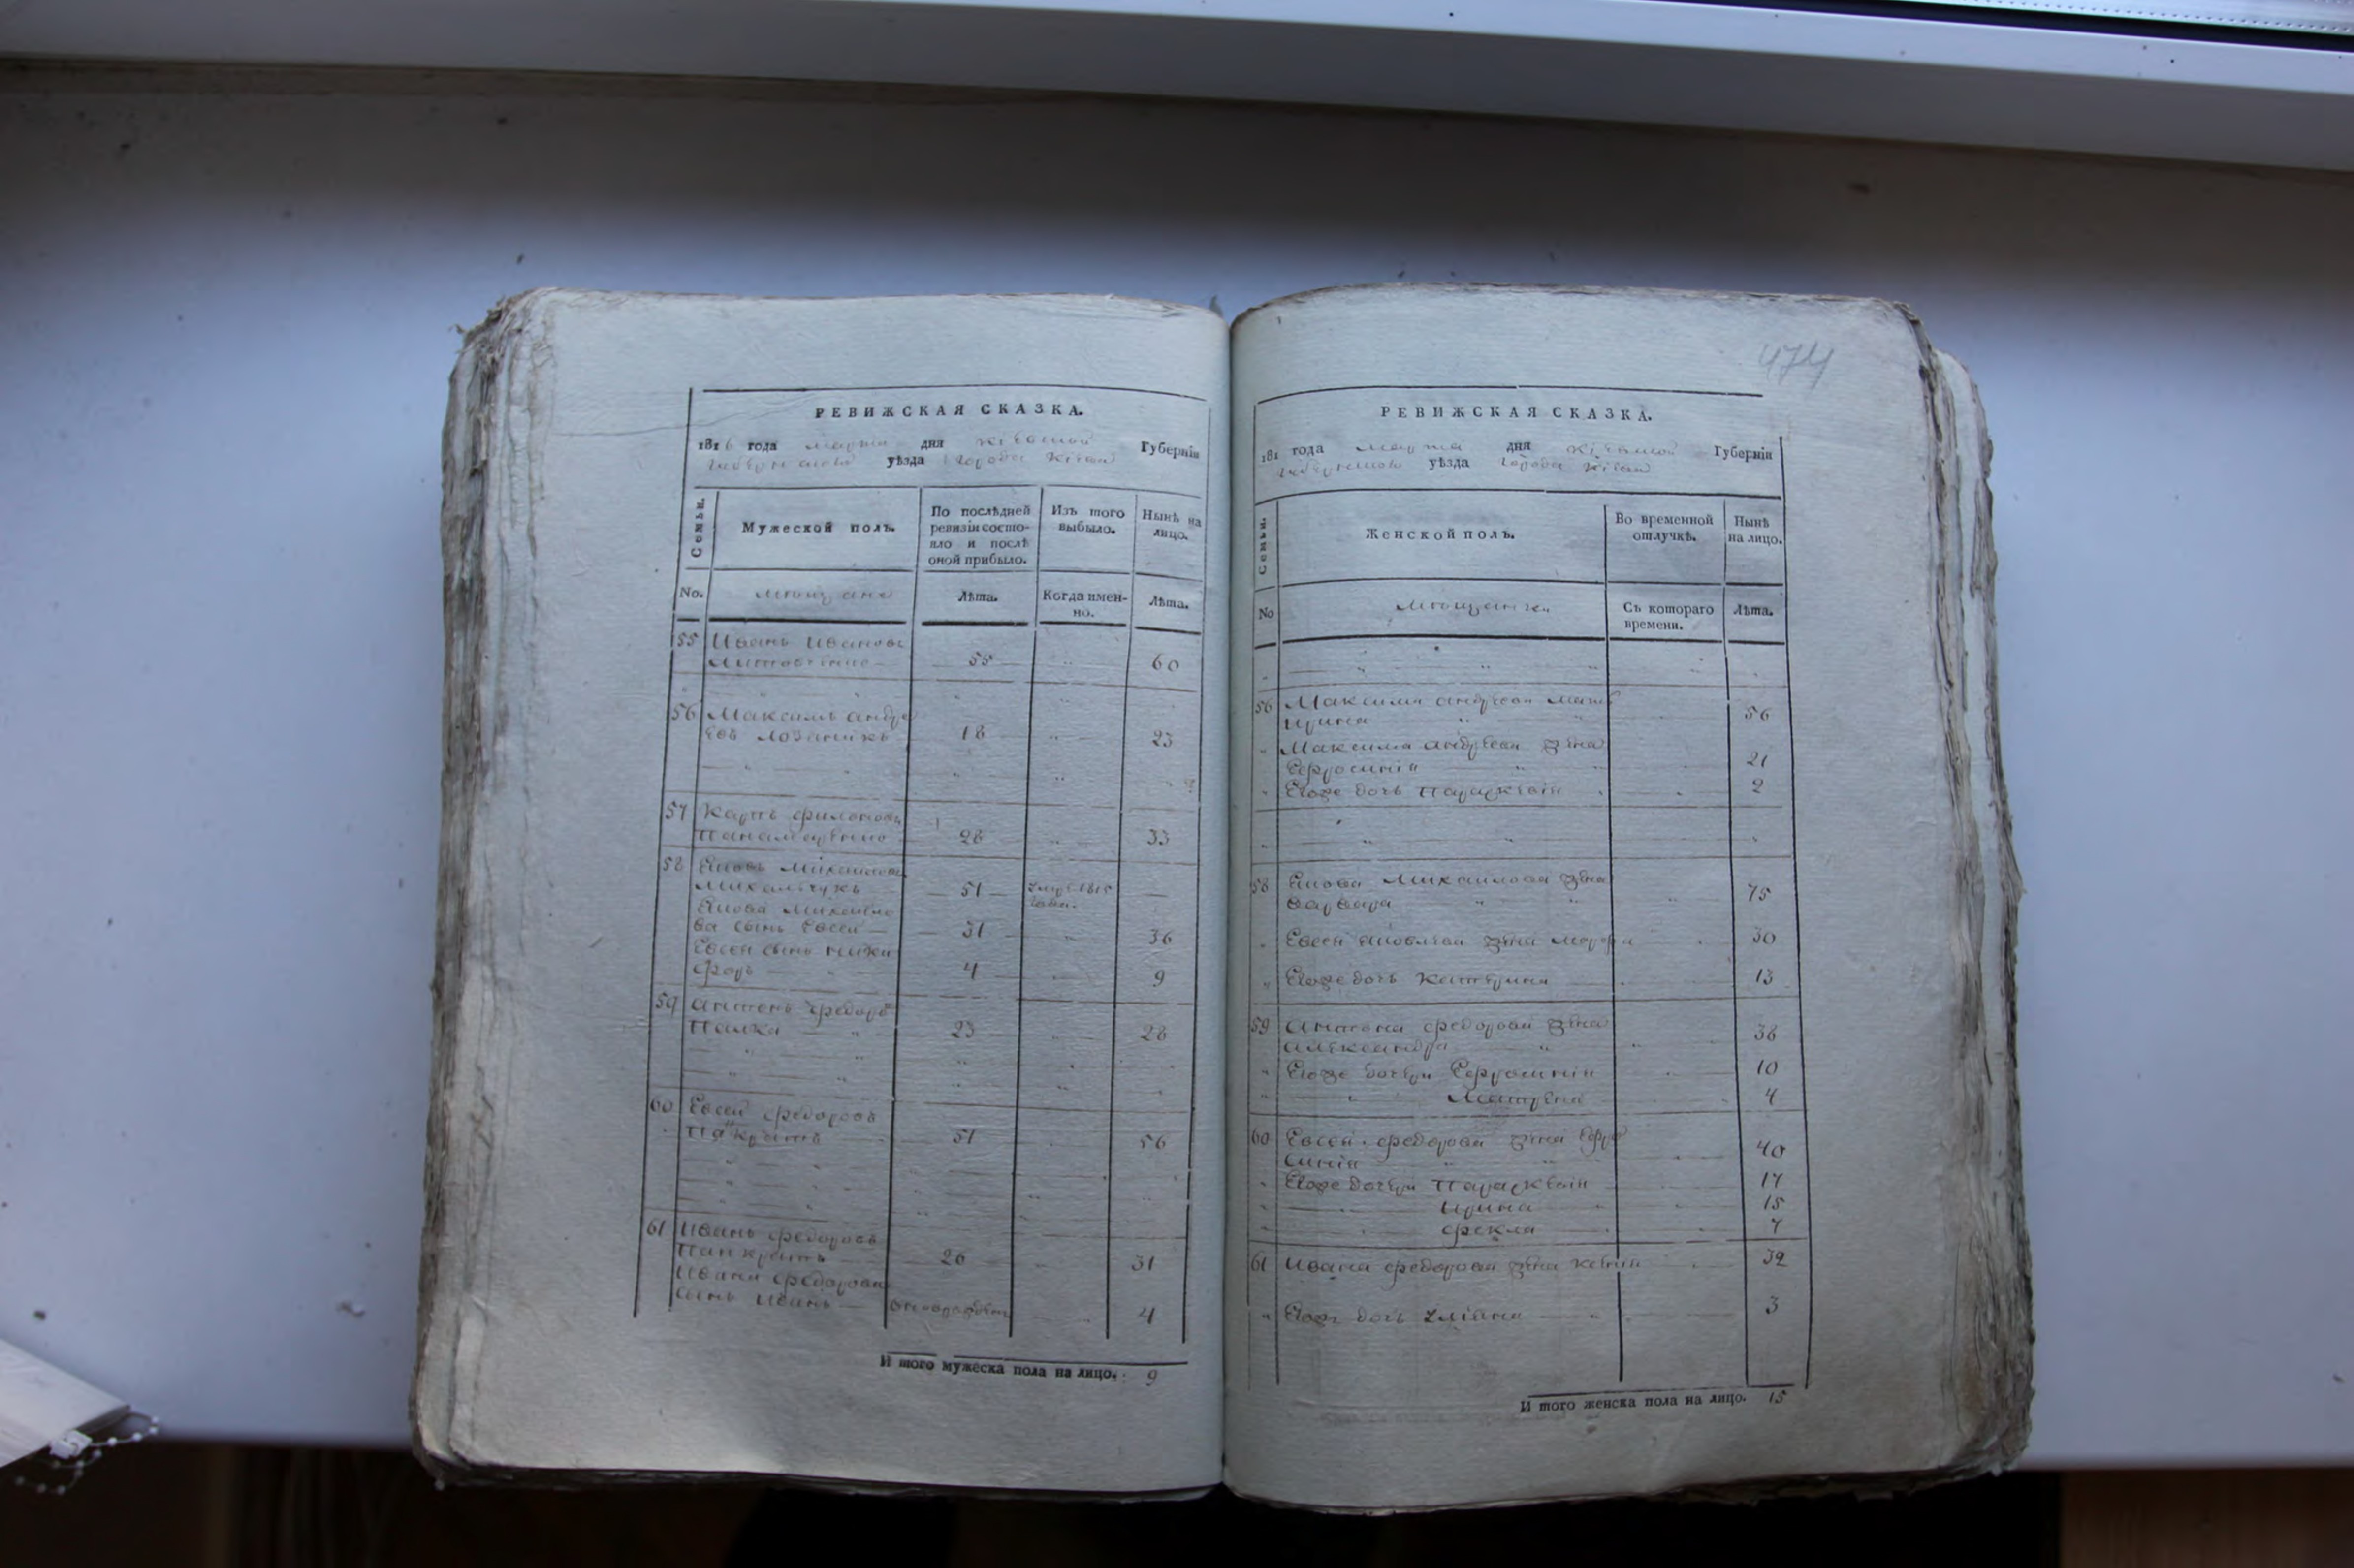 РЕВИЖСКАЯ СКАЗКА.
1816 года марта дня Кіевской Губерніи
уѣзда города Кіева
Семьи. Мужеской полъ. По послѣдней ревизіи состояло и послѣ оной прибыло. Изъ того выбыло. Нынѣ на лицо.
No. мѣщане Лѣта. Когда именно. Лѣта.
55 Иванъ Ивановъ
Литовченко 55 60
56 Максимъ Андре
евъ 18 23
57 Карпъ Филоновъ
28 33
58 Яковъ Михайловъ
Михальчукъ 51 умре 1815 года.
Якова Михайло
ва сынъ Евсей 31 36
Евсея сынъ Ники
форъ 4 9
59 Антонъ Федоров
Палка 23 28
60 Евсей Федоровъ
Панкратъ 51 56
61 Иванъ Федоровъ
Панкратъ 26 31
Ивана Федорова
сынъ Иванъ новорожден 4
И того мужеска пола на лицо. 9
474
РЕВИЖСКАЯ СКАЗКА.
181 года марта дня Кіевской Губерніи
уѣзда города Кіева
Семьи. Женской полъ. Во временной отлучкѣ. Нынѣ на лицо.
No мѣщанки Съ котораго времени. Лѣта.
56 Максима Андреева мать
Ирина 56
Максима Андреева жена
Ефросинія 21
Егоже дочь Параскевія 2
58 Якова Михайлова жена
Варвара 75
Евсея Яковлева жена Марфа 30
Егоже дочь Катерина 13
59 Антона Федорова жена
Александра 38
Егоже дочери Ефросинія 10
Матрена 4
60 Евсея Федорова жена Ефро
синія 40
Егоже дочери Параскевія 17
Ирина 15
Фекла 7
61 Ивана Федорова жена 32
Егоже дочь Уліяна 3
И того женска пола на лицо. 15